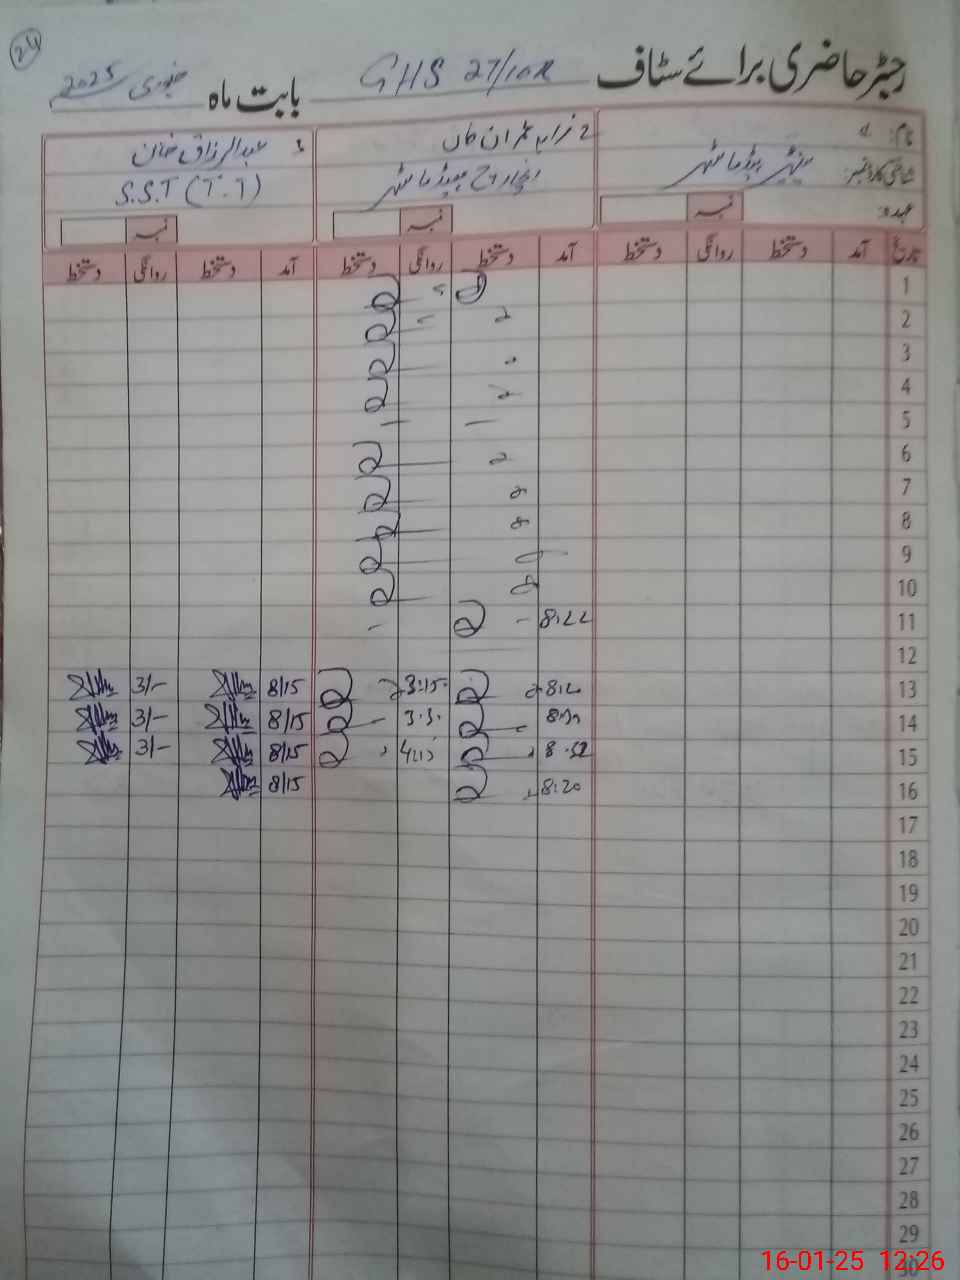 24
رجسٹر حاضری برائے سٹاف GHS 27/10R بابت ماہ جنوری 2025
نام: 1 2 عمران خان 3 عبدالرزاق خان
شناختی کارڈ نمبر: سینئر ہیڈماسٹر انچارج ہیڈماسٹر S.S.T (T.T)
عہدہ: نمبر نمبر نمبر
تاریخ آمد دستخط روانگی دستخط آمد دستخط روانگی دستخط آمد دستخط روانگی دستخط
1
2
3
4
5 — —
6
7
8
9
10
11 8:22 -
12
13 8:20 3:15 8/15 3/-
14 3:30 8/15 3/-
15 8:52 4:15 8/15 3/-
16 8:20 8/15
17
18
19
20
21
22
23
24
25
26
27
28
29
30
16-01-25 12:26